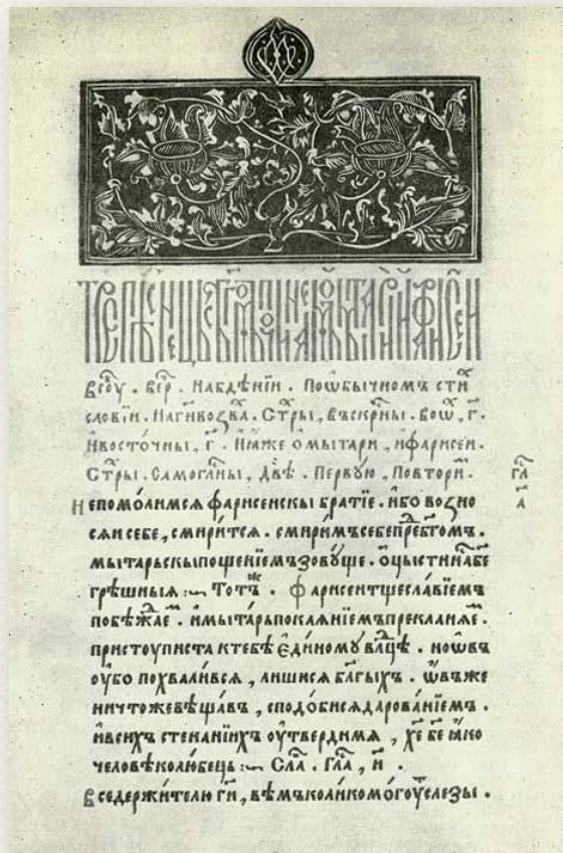 Всоⷠу . веⷱр . Набдѣнїи . Поѡбычномъ стиⷯ
словїи . Наг҃ивозваⷯ . Стⷯры , въскрⷭны . воѡⷭ , г҃ .
Ивосто́чны , г҃ . И ѡмытари , ифарисеи .
Стⷯры . Самоглⷭны , Двѣ . Первꙋю , Повториⷨ .
глⷭа
Непомо́лимсѧ фарисеискы братїе . ибо возно
сѧисебе , смири́тсѧ . смири́мъсебепреⷣбг҃омъ .
мытарьскыпощенїемъзовꙋще . ѻцыстинⷭыбе҃
грѣшныѧ :~ Тоⷤтъ . Фарисеитщесла́вїемъ
побѣждⷣаеⷨ . имы́тарьпокаѧнїемъпрекланѧеⷨ .
пристоуписта ктебѣ є҆ди́номꙋ влⷣце . ноѡ҆въ
оу҆бо похвали́всѧ , лишисѧ бл҃гыхъ . ѡ҆въже
ничтожевѣща́въ , сподо́бисѧдарова́нїемъ .
и҆всихъ стенанїихъ оу҆твердимѧ , хе҃ бе҃ ꙗ҆ко
человѣколю́бець :~ Слⷶа . Глⷭа , и҃ .
Вседержителю ги҃ , вѣмъколи́комо́гоуⷮслезы .